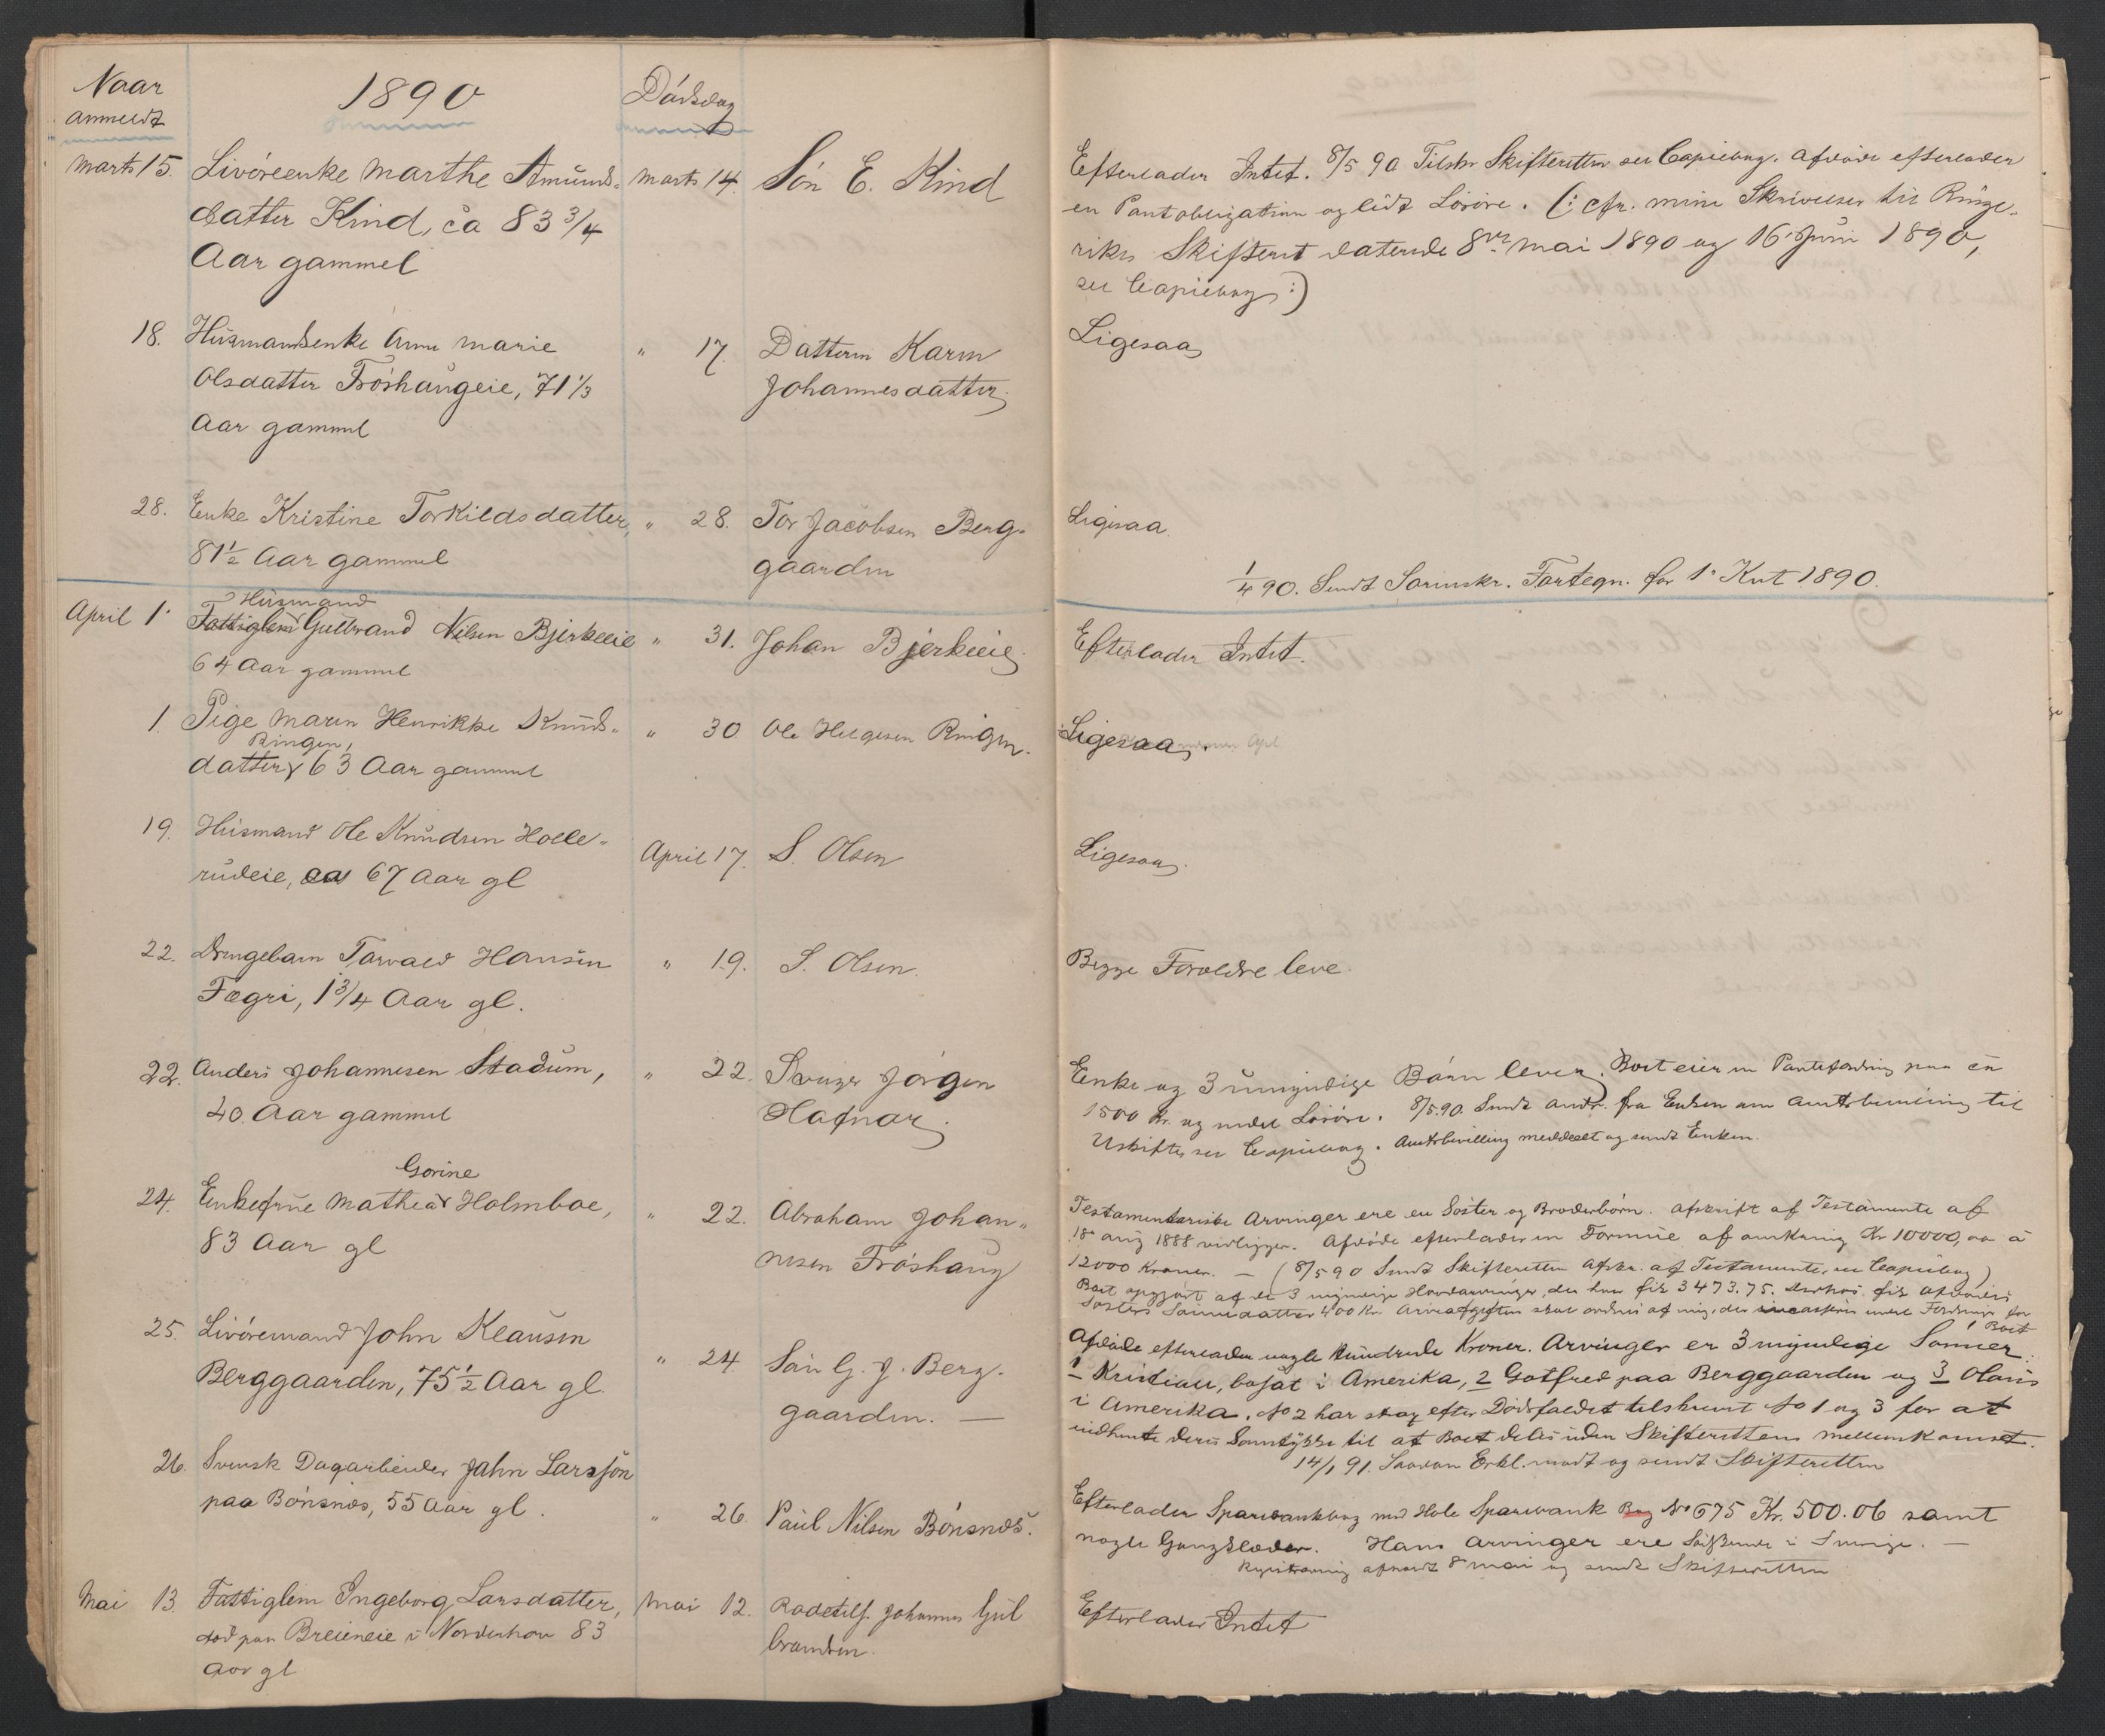 Naar
anmeldt
1890
Dödsdag
Marts 15. Livöreenke Marthe Amunds- Marts 14. Sön E. Kind
datter Kind, ca 83 3/4
Aar gammel
Efterlader Intet. 8/5 90 Tilskr Skifteretten see Copiebog. Afdöde efterlader
en Pantobligation og lidt Lösöre. (: cfr. mine Skrivelser til Ringe-
rikes Skifteret daterede 8de Mai 1890 og 16 Juni 1890,
see Copiebog :)
18. Husmandsenke Anne Marie " 17. Datteren Karen
Olsdatter Fröshaugeie, 71 1/3 Johannesdatter.
Aar gammel
Ligesaa
28. Enke Kristine Torkildsdatter, " 28. Tor Jacobsen Berg-
81 1/2 Aar gammel gaarden
Ligesaa.
1/4 90. Sendt Sorenskr. Fortegn. for 1. Kvt 1890.
Husmand
April 1. Fattiglem Gulbrand Nilsen Bjerkeeie " 31. Johan Bjerkeeie
64 Aar gammel
Efterlader Intet.
1. Pige Maren Henrikke Knuds- " 30 Ole Helgesen Ringen.
Ringen,
datter 63 Aar gammel
Ligesaa.
19. Husmand Ole Knudsen Holle- April 17. S. Olsen
rudeie, ca 67 Aar gl
Ligesaa.
22. Drengebarn Torvald Hansen " 19. S. Olsen.
Fægri, 1 3/4 Aar gl.
Begge Forældre leve.
22. Anders Johannesen Stadum, " 22. Svoger Jörgen
40 Aar gammel Hafnor.
Enke og 3 umyndige Börn lever. Boet eier en Pantefordring paa ca
1500 Kr. og endel Lösöre. 8/5.90. Sendt Andr. fra Enken om Amtsbevilling til
Uskifte, see Copiebog. Amtsbevilling meddeelt og sendt Enken.
Gorine
24. Enkefrue Mathea Holmboe, " 22. Abraham Johan-
83 Aar gl nesen Fröshaug
Testamentariske Arvinger ere en Söster og Broderbörn. Afskrift af Testamente af
18 Aug 1888 vedligger. Afdöde efterlader en Formue af omkring Kr 10000,00 à
12000 Kroner. — (8/5 90 Sendt Skifteretten Afskr. af Testamente, see Copiebog)
Boet opgjort af de 3 myndige Hovedarvinger, der hver fik 3473.75. fik Afdödes
Sösters Sönnedatter 400 Kr. Arveafgiften skal ordnes af mig, der endel Fordringer for
Boet
25. Livöremand John Klausen
Berggaarden, 75 1/2 Aar gl. " 24 Sön G. J. Berg-
gaarden. —
Afdöde efterlader nogle Hundrede Kroner. Arvinger er 3 myndige Sönner:
1 Kristian, bosat i Amerika, 2 Gotfred paa Berggaarden og 3 Olaus
i Amerika. No 2 har strax efter Dödsfaldet tilskrevet No 1 og 3 for at
indhente deres Samtykke til at Boet deles uden Skifterettens Mellemkomst.
14/1 91. Saadan Erkl. modt og sendt Skifteretten
26. Svensk Dagarbeider John Larsson
paa Bönsnæs, 55 Aar gl. " 26. Paul Nilsen Bönsnæs.
Efterlader Sparebankbog med Hole Sparebank Bog No 675 Kr. 500.06 samt
nogle Gangklæder. Hans Arvinger ere Södskende i Sverige. —
Registrering afholdt 8 Mai og sendt Skifteretten
Mai 13. Fattiglem Ingeborg Larsdatter, Mai 12. Rodetilf. Johannes Gul
död paa Breieneie i Norderhov 83 brandsen.
Aar gl
Efterlader Intet